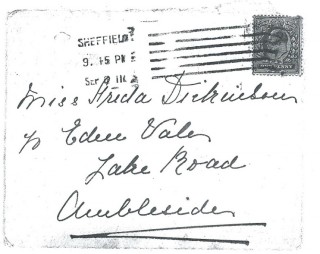 SHEFFIELD
9. 15 PM
SEP
Miss Frida Dickinson
℅ Eden Vale
Lake Road
Ambleside